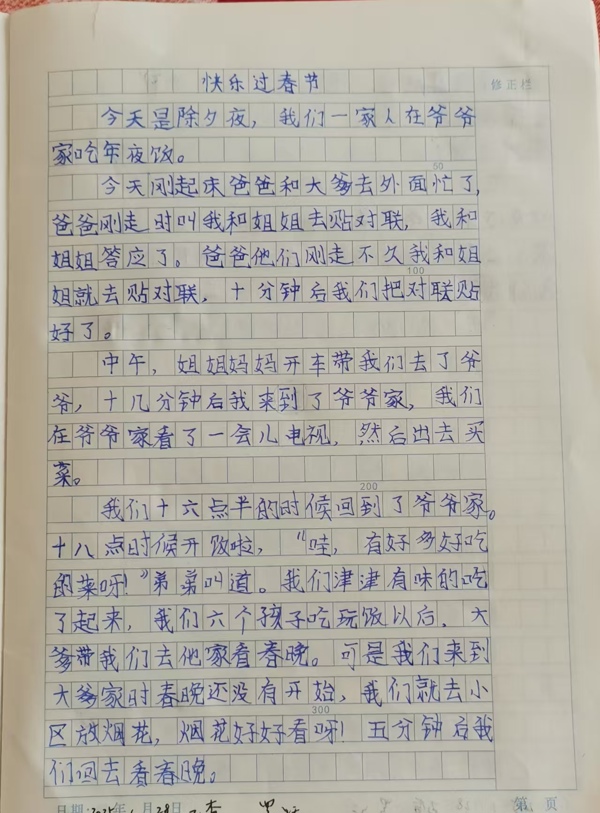 快乐过春节
修正栏
今天是除夕夜，我们一家人在爷爷
家吃年夜饭。
50
今天刚起床爸爸和大爹去外面忙了，
爸爸刚走时叫我和姐姐去贴对联，我和
姐姐答应了。爸爸他们刚走不久我和姐
100
姐就去贴对联，十分钟后我们把对联贴
好了。
中午，姐姐妈妈开车带我们去了爷
爷，十几分钟后我来到了爷爷家，我们
在爷爷家看了一会儿电视，然后出去买
菜。
200
我们十六点半的时候回到了爷爷家。
十八点时候开饭啦，“哇，有好多好吃
的菜呀！”弟弟叫道。我们津津有味的吃
了起来，我们六个孩子吃玩饭以后，大
爹带我们去他家看春晚。可是我们来到
大爹家时春晚还没有开始，我们就去小
300
区放烟花，烟花好好看呀！五分钟后我
们回去看春晚。
日期：2025年 月28日
第 页